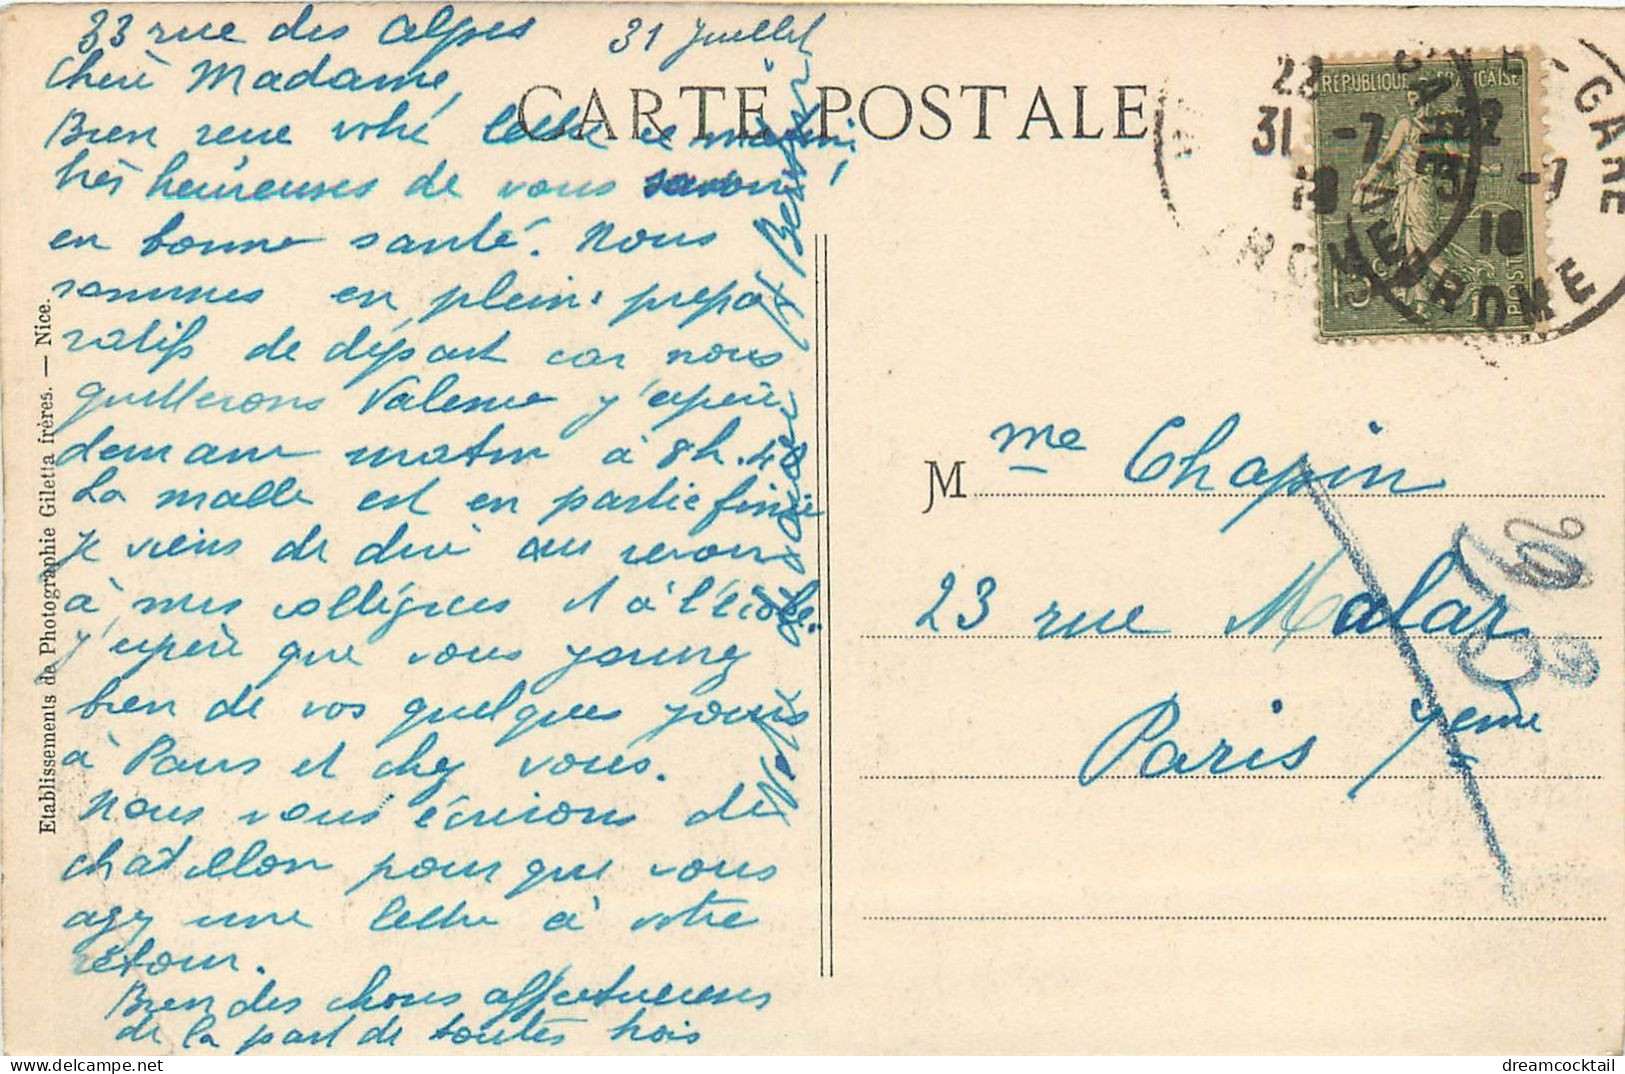 33 rue des Alpes 31 Juillet
Chère Madame,
Bien reçu votre lettre ce matin
très heureuses de vous savoir
en bonne santé. Nous
sommes en pleins prépa
ratifs de départ car nous
quitterons Valence j'espère
demain matin à 8h.48
La malle est en partie finie
je viens de dire au revoir
à mes collègues et à l'école.
j'espère que vous jouirez
bien de vos quelques jours
à Paris et chez vous.
Nous vous écrirons de
chatillon pour que vous
ayez une lettre à votre
retour.
Bien des choses affectueuses
de la part de toutes trois
CARTE POSTALE
Etablissements de Photographie Giletta frères. — Nice.
REPUBLIQUE FRANÇAISE
POSTES
22
31 -7
18
22
-7
18
GARE
DROME
M me Chapin
23 rue Malar
Paris 7eme
dreamcocktail